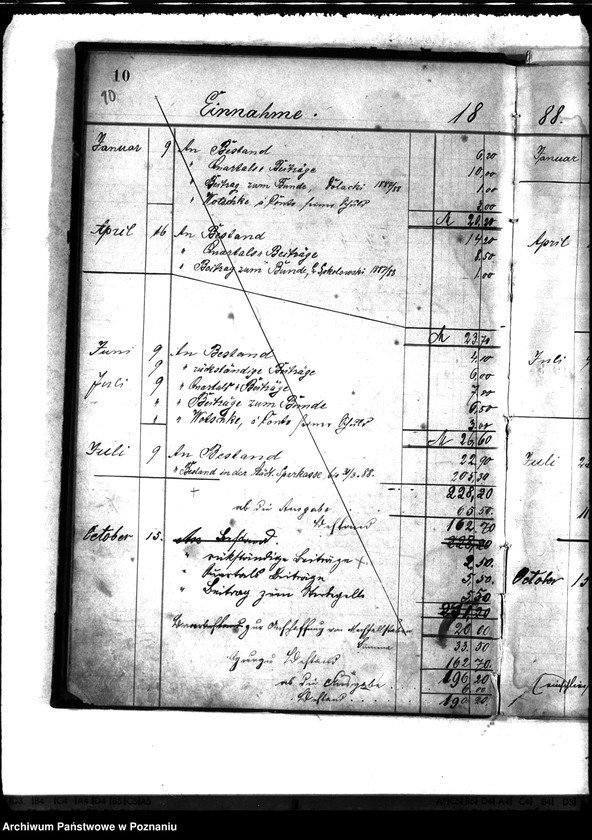 10
10
Einnahme. 18 88.
Januar 9 An Bestand 6,20
" Quartals Beiträge 10,00
" Beitrag zum Bunde, 1887/88 1,00
" Wotschke à Konto seiner Schuld 3,00
M 20,20
April 16 An Bestand 14,20
" Quartals Beiträge 8,50
" Beitrag zum Bunde, Sokolowski 1887/88 1,00
M 23,70
Juni 9 An Bestand 4,10
9 " rückständige Beiträge 6,00
Juli 9 " Quartals Beiträge 7,00
" " Beiträge zum Bunde 6,50
" Wotschke, à Konto seiner Schuld 3,00
M 26,60
Juli 9 An Bestand 22,90
" Bestand in der Städt. Sparkasse bis 88. 205,30
228,20
ab die Ausgabe 65 50.
Bestand 162 70
October 15. An Bestand. 228,20
" rükständige Beiträge 2,50.
" Quartals Beiträge 5,50
" Beitrag zum 5,50
zur Anschaffung von 20 00
Summa 33,50
Bestand 162 70.
196 20
ab die Ausgabe 6 00
Bestand 190 20
Januar
April
Juli
Juli
October 15
Archiwum Państwowe w Poznaniu